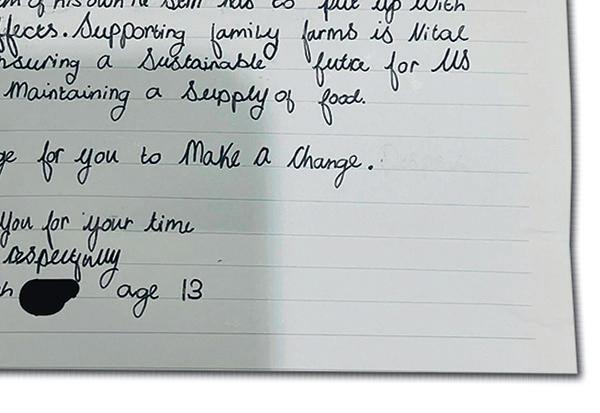 of his own he still has to put up with
ffects. Supporting family farms is Vital
nsuring a Sustainable futre for US
Maintaining a Supply of food.
ge for you to Make a Change.
You for your time
respectfully
h age 13